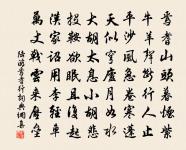 焉耆山頭暮煙紫
牛羊聲斷行人止
平沙風急卷寒蓬
天似穹廬月如水
大胡太息小胡悲
投鞍欲眠且復起
漢家詔用李輕車
萬丈戰雲來壓壘
陸游焉耆行詞典網書